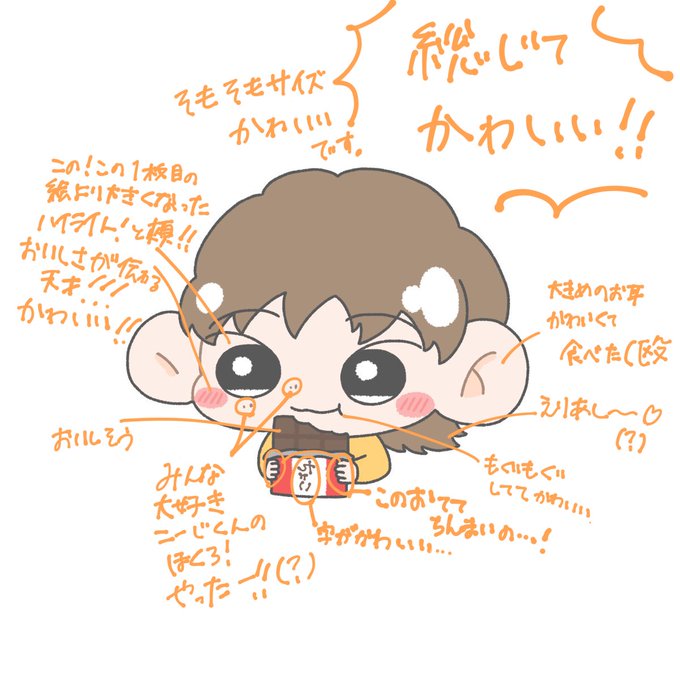 総じて
かわいい!!
そもそもサイズ
かわいい
です。
この!この1枚目の
絵より大きくなった
ハイライト!と頬!!
おいしさが伝わる
天才!!!...
かわいい!!
大きめのお耳
かわいくて
食べた(殴
えりあし〜♡
(?)
おいしそう
もぐもぐ
しててかわいい
ちょこ
みんな
大好き
ニーじくんの
ほくろ!
やったー!!(?)
このおてて
ちんまいの...!
字がかわいい...